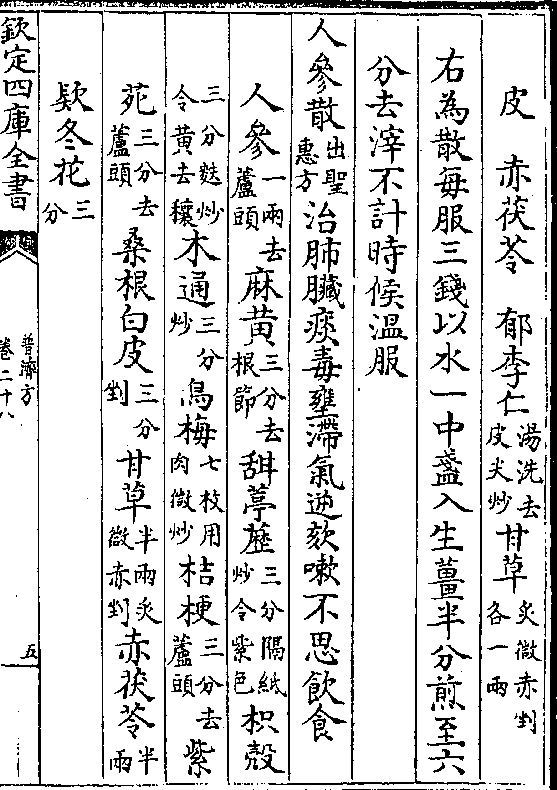 皮　赤茯苓　郁李仁湯洗去皮尖炒甘草炙微赤剉各一兩
右為散每服三錢以水一中盞入生薑半分煎至六
分去滓不計時候溫服
人參散出聖惠方治肺臟痰毒壅滯氣逆欬嗽不思飲食
人參一兩去蘆頭麻黄三分去根節甜葶藶三分隔紙炒令紫色枳殼
三分麩炒令黄去穰木通三分炒烏梅七枚用肉微炒桔梗三分去蘆頭紫
苑三分去蘆頭桑根白皮三分剉甘草半兩炙微赤剉赤茯苓半兩
欵冬花三分
欽定四庫全書
普濟方
卷二十八
五